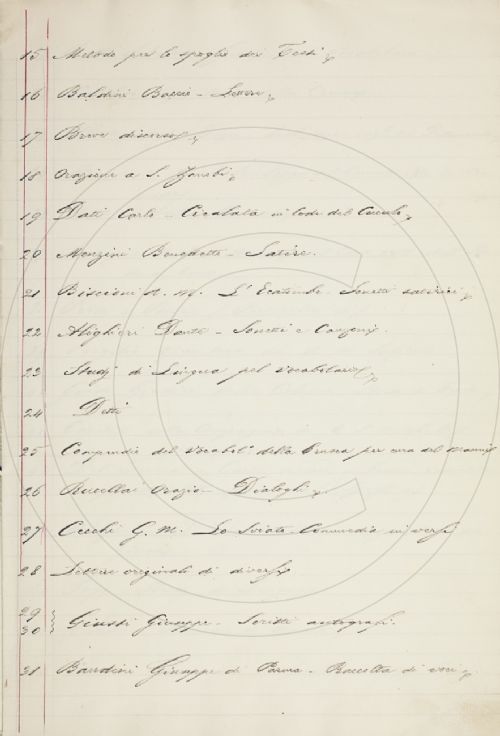 15 Metodo per lo spoglio dei Testi
16 Baldini Baccio - Lettere
17 Breve discorso
18 Orazione a S. Zanobi
19 Dati Carlo - Cicalata in lode del Cuculo
20 Menzini Benedetto - Satire.
21 Biscioni A. M. L'Ecatombe - Sonetti satirici
22 Alighieri Dante - Sonetti e Canzoni.
23 Studj di Lingua pel Vocabolario
24 Detti
25 Compendio del Vocabol° della Crusca per cura del Manni
26 Rucellai Orazio - Dialoghi
27 Cecchi G. M. Lo Sviato - Commedia in versi
28 Lettere originali di diversi
29
30 Giusti Giuseppe - Scritti autografi.
31 Bandini Giuseppe di Parma - Raccolta di voci